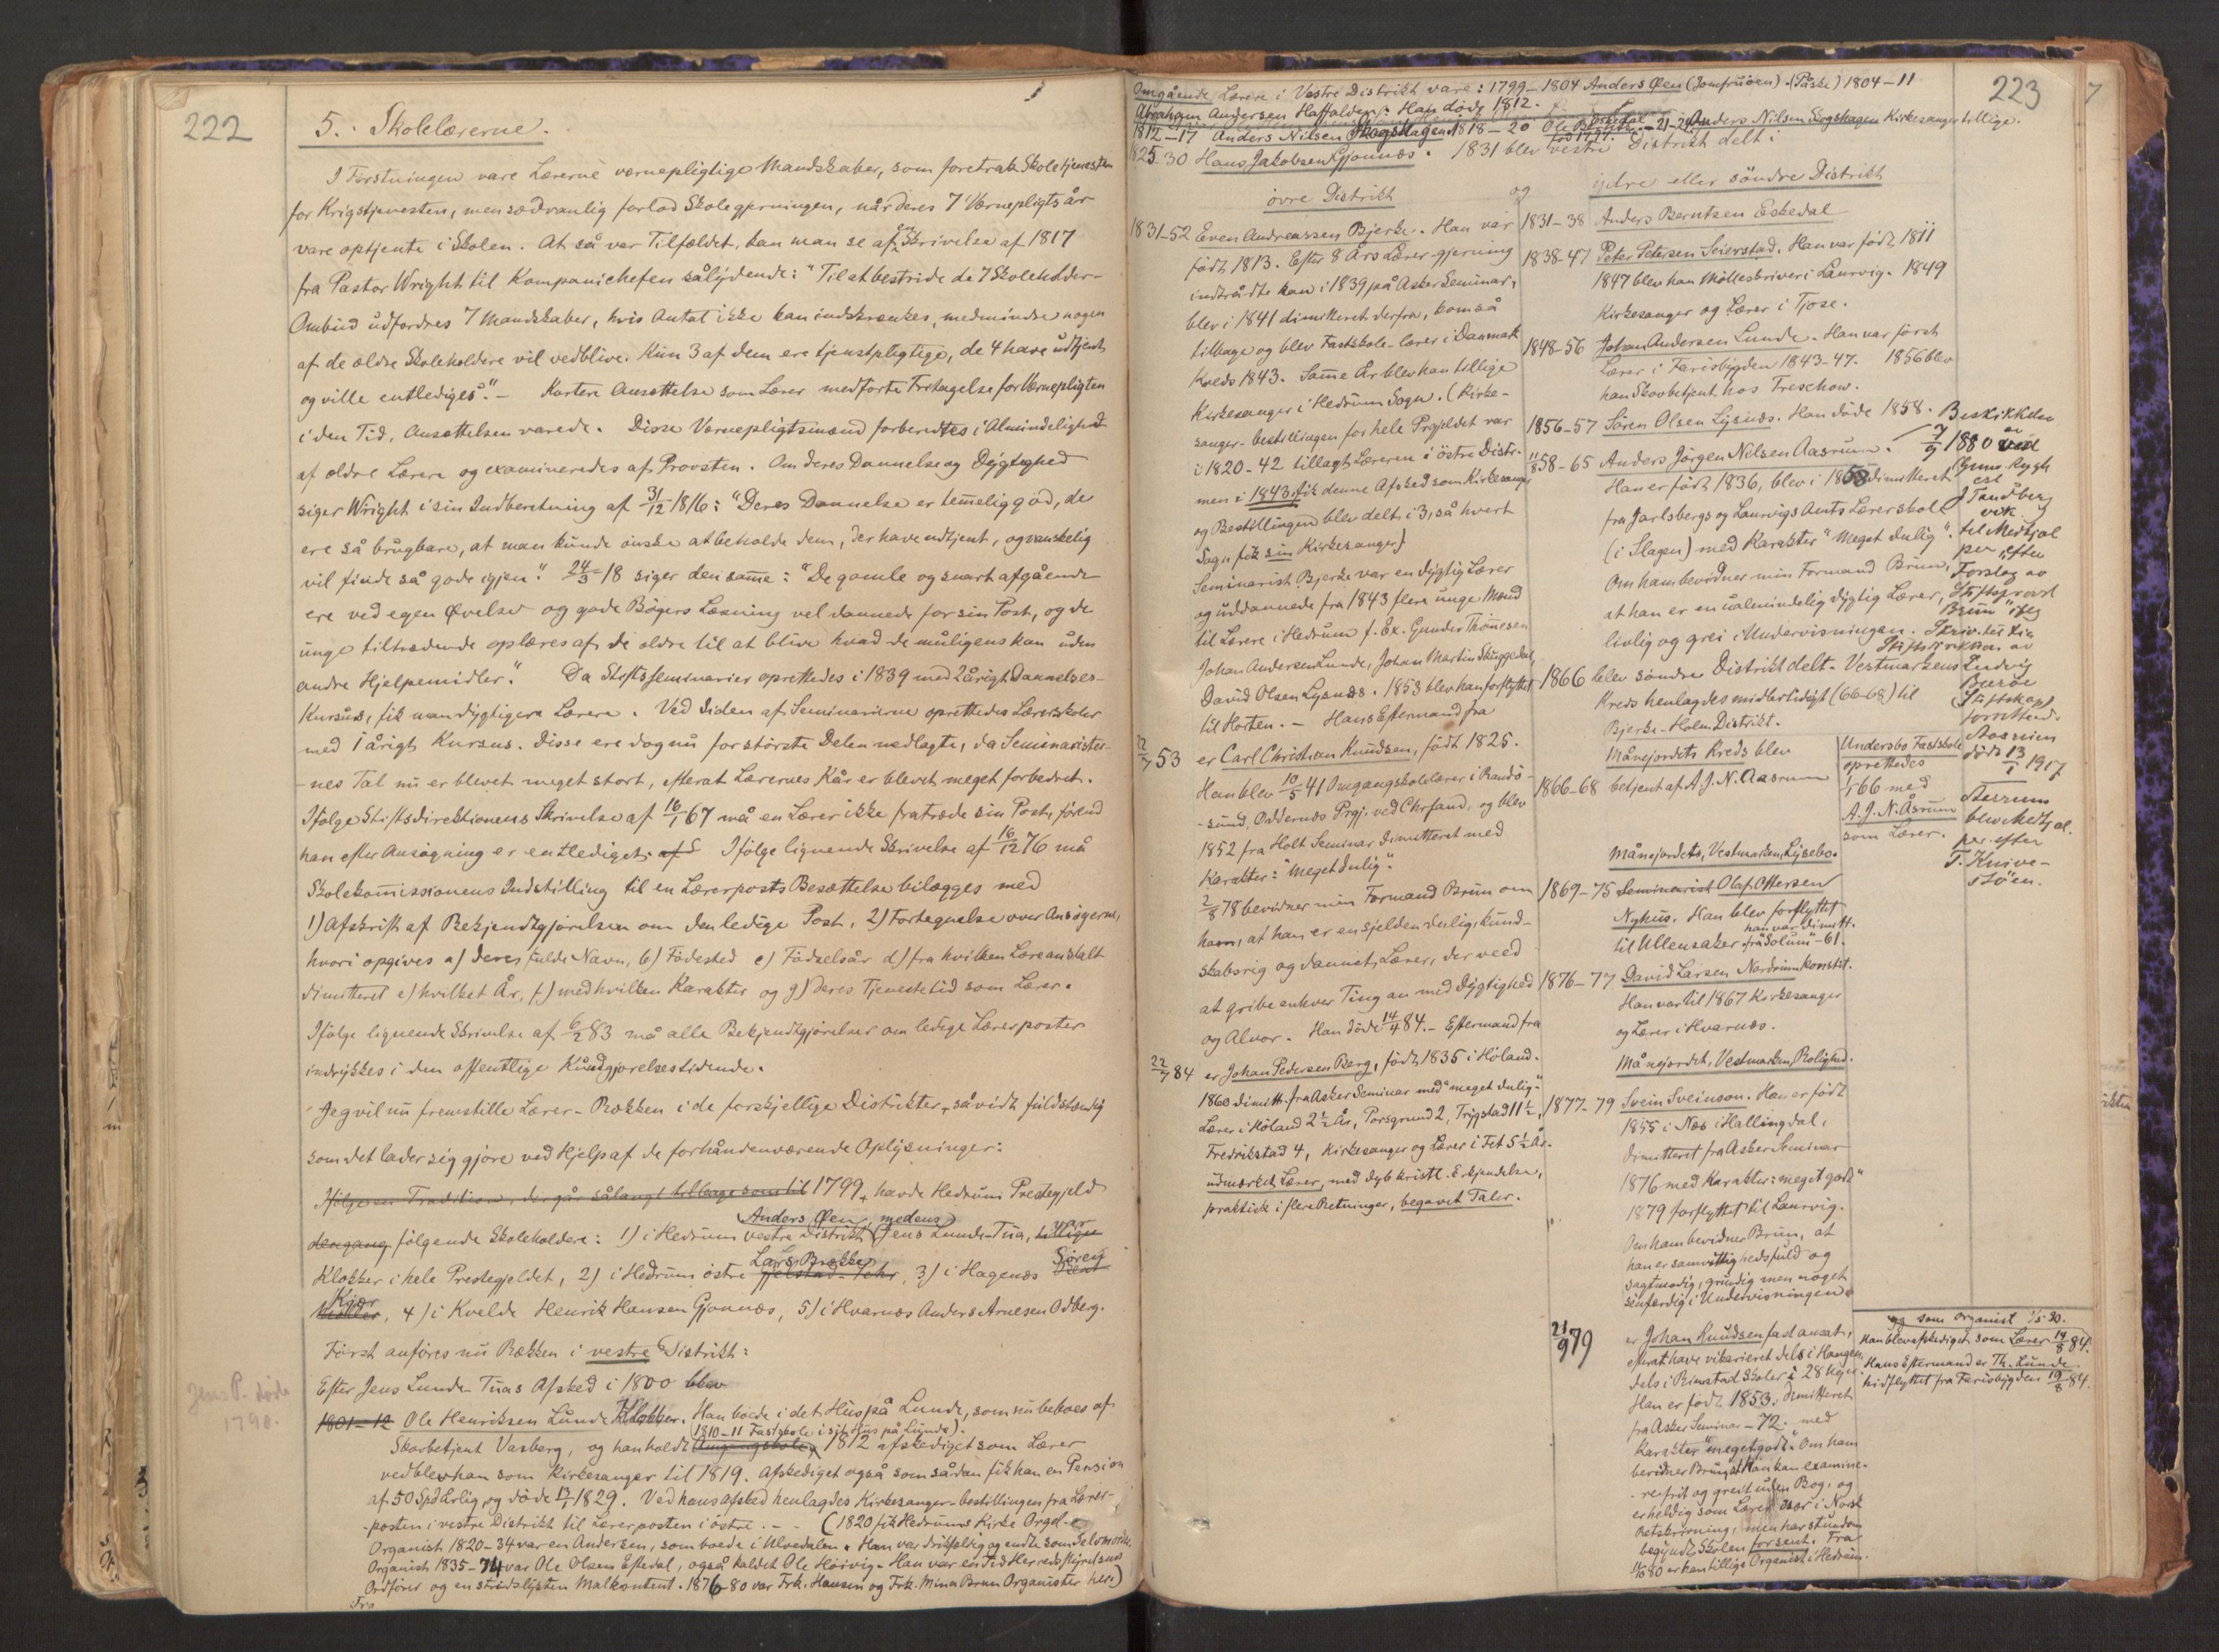 222
5. Skolelærerne.
I Førstningen vare Lærerne værnepligtige Mandskaber, som foretrak Skoletjenesten
for Krigstjenesten, men sædvanlig forlod Skolegjerningen, når deres 7 Værnepligtsår
vare optjente i Skolen. At så var Tilfældet, kan man se af Skrivelse af 1817
fra Pastor Wright til Kompanichefen sålydende: "Til at bestride de 7 Skoleholder-
Ombud udfordres 7 Mandskaber, hvis Antal ikke kan indskrænkes, medmindre nogen
af de ældre Skoleholdere vil vedblive. Kun 3 af dem ere tjenstpligtige, de 4 have udtjent
og ville entlediges." — Kortere Ansættelse som Lærer medførte Fritagelse for Værnepligten
i den Tid, Ansættelsen varede. Disse Værnepligtsmænd forberedtes i Almindelighed
af ældre Lærere og examineredes af Provsten. Om deres Dannelse og Dygtighed
siger Wright i sin Indberetning af 31/12 1816: "Deres Dannelse er temmelig god, de
ere så brugbare, at man kunde ønske at beholde dem, der have udtjent, og vanskelig
vil finde så gode igjen." 24/3 18 siger den samme: "De gamle og snart afgående
ere ved egen Øvelse og gode Bøgers Læsning vel dannede for sin Post, og de
unge tiltrædende oplæres af de ældre til at blive hvad de muligens kan uden
andre Hjelpemidler." Da Stiftsseminarier oprettedes i 1839 med 2 årigt Dannelses-
Kursus, fik man dygtigere Lærere. Ved Siden af Seminarierne oprettedes Lærerskoler
med 1 årigt Kursus. Disse ere dog nu for største Delen nedlagte, da Seminarister-
nes Tal nu er blevet meget stort, efterat Lærernes Kår er blevet meget forbedret.
Ifølge Stiftsdirektionens Skrivelse af 16/1 67 må en Lærer ikke fratræde sin Post, førend
han efter Ansøgning er entlediget. Ifølge lignende Skrivelse af 16/12 76 må
Skolekommissionens Indstilling til en Lærerposts Besættelse bilægges med
1) Afskrift af Bekjendtgjørelsen om den ledige Post, 2) Fortegnelse over Ansøgerne,
hvori opgives a) deres fulde Navn, b) Fødested c) Fødselsår d) fra hvilken Læreanstalt
dimitteret e) hvilket År, f) med hvilken Karakter og g) deres Tjenestetid som Lærer.
Ifølge lignende Skrivelse af 6/2 83 må alle Bekjendtgjørelser om ledige Lærerposter
indrykkes i den offentlige Kundgjørelsestidende.
Jeg vil nu fremstille Lærer-Rækken i de forskjellige Distrikter, såvidt fuldstændig
som det lader sig gjøre ved Hjelp af de forhåndenværende Oplysninger:
Ifølge en Tradition, der går sålangt tilbage som til 1799, havde Hedrum Prestegjeld
Anders Øen, medens
dengang følgende Skoleholdere: 1) i Hedrum vestre Distrikt Jens Lunde-Tua,
Lars Brække Søren
Klokker i hele Prestegjeldet, 2) i Hedrum østre , 3) i Hagenæs
Kjær
, 4) i Kvelde Henrik Hansen Gjønnæs, 5) i Hvarnæs Anders Arnesen Odberg.
Først anføres nu Rækken i vestre Distrikt:
Jens P. døde
1790.
Efter Jens Lunde-Tuas Afsked i 1800 blev
1801–12 Ole Henriksen Lunde Klokker. Han boede i det Hus på Lunde, som nu beboes af
1810–11 Fastskole i sit Hus på Lunde).
Skovbetjent Vasberg, og han holdt Omgangskole. 1812 afskediget som Lærer
vedblev han som Kirkesanger til 1819. Afskediget også som sådan fik han en Pension
af 50 Spd årlig og døde 13/1 1829. Ved hans Afsked henlagdes Kirkesanger-bestillingen fra Lærer-
posten i vestre Distrikt til Lærerposten i østre. — (1820 fik Hedrums Kirke Orgel.
Organist 1820–34 var en Andersen, som boede i Ulvedalen. Han var drikfældig og endte som Selvmorder.
Organist 1835–74 var Ole Olsen Eftedal, også kaldet Ole Høivig. Han var en Tid Herredsstyrelsens
Ordfører og en stridslysten Malkontent. 1876–80 var Frk. Hansen og Frk. Mina Brun Organister her.)
Fra
223
Omgående Lærere i Vestre Distrikt vare: 1799–1804 Anders Øen (Jomfruøen) (Påske) 1804–11
Abraham Andersen Haffalden. Han døde 1812.
1812–17 Anders Nilsen Skogshagen. 1818–20 Ole –21–24 Anders Nilsen Skogshagen Kirkesanger tillige.
1825–30 Hans Jakobsen Gjønnæs. 1831 blev vestre Distrikt delt i
øvre Distrikt og ydre eller søndre Distrikt
1831–52 Even Andreassen Bjerke. Han var
født 1813. Efter 8 Års Lærer-gjerning
indtrådte han i 1839 på Asker Seminar,
blev i 1841 dimitteret derfra, kom så
tilbage og blev Fastskole-lærer i Danmark
Kreds 1843. Samme År blev han tillige
Kirkesanger i Hedrum Sogn. (Kirke-
sanger-bestillingen for hele Prgjeldet var
i 1820–42 tillagt Læreren i østre Distr.
men i 1843 fik denne Afsked som Kirkesanger
og Bestillingen blev delt i 3, så hvert
Sogn fik sin Kirkesanger)
Seminarist Bjerke var en dygtig Lærer
og uddannede fra 1843 flere unge Mænd
til Lærere i Hedrum f. Ex. Gunder Thommesen
Johan Andersen Lunde, Johan Martin Skuggedal,
David Olsen Lysnæs. 1853 blev han forflyttet
til Horten. — Hans Eftermand fra
22/7 53 er Carl Christian Knudsen, født 1825.
Han blev 10/5 41 Omgangskolelærer i Randø-
sund, Oddernæs Prgj. ved Chrsand, og blev
1852 fra Holt Seminar dimitteret med
Karakter: "Meget duelig".
2/8 78 bevidner min Formand Brun om
ham, at han er en sjelden duelig, kund-
skabsrig og dannet Lærer, der veed
at gribe enhver Ting an med Dygtighed
og Alvor. Han døde 14/4 84. — Eftermand fra
22/7 84 er Johan Pedersen Berg, født 1835 i Høland.
1860 dimitt. fra Asker Seminar med "meget duelig".
Lærer i Høland 2½ År, Porsgrund 2, Trygstad 11½,
Fredrikstad 4, Kirkesanger og Lærer i Fet 5½ År.
udmærket Lærer, med dyb kristl. Erkjendelse,
praktisk i flere Retninger, begavet Taler.
1831–38 Anders Berntsen Eskedal
1838–47 Peter Petersen Seierstad. Han var født 1811
1847 blev han Mølleskriver i Laurvig. 1849
Kirkesanger og Lærer i Tjose.
1848–56 Johan Andersen Lunde. Han var først
Lærer i Farisbygden 1843–47. 1856 blev
han Skovbetjent hos Treschow.
1856–57 Søren Olsen Lysnæs. Han døde 1858.
11/8 58–65 Anders Jørgen Nilsen Aasrum.
Han er født 1836, blev i 1858 dimitteret
fra Jarlsbergs og Laurvigs Amts Lærerskole
(i Slagen) med Karakter "Meget duelig".
Om ham bevidner min Formand Brun,
at han er en ualmindelig dygtig Lærer,
livlig og grei i Undervisningen.
1866 blev søndre Distrikt delt. Vestmarkens
Kreds henlagdes midlertidigt (66–68) til
Bjerke-Holm Distrikt.
Månejordets Kreds blev
1866–68 betjent af A. J. N. Aasrum
Undersbo Fastskole
oprettedes
1/1 66 med
A. J. N. Åsrum
som Lærer.
Beskikkelse
7/9 1880 av
Gunv. Rygh
est
J Tandberg
vik.
til Medhjæl
per efter
Forslag av
Stiftsprovst
Brun ifg
Skriv. til fra
Stiftsdirektion av
Ludvig
Buzoe
Stiftskapl
forrettende
Aasruien
døde 13/1 1917
Aasrum
blev Medhjæl.
per. efter
T. Knive-
støen.
Månejordets, Vestmarken, Lysebo.
1869–75 Seminarist Olaf Ottersen
Nykus. Han blev forflyttet
han var dimitt.
til Ullensaker. fra Solum –61.
1876–77 David Larsen Nordrum konstit.
Han var til 1867 Kirkesanger
og Lærer i Hvarnæs.
Månejordet, Vestmarken, Rolighed.
1877–79 Svein Sveinson. Han er født
1855 i Næs i Hallingdal,
dimitteret fra Asker Seminar
1876 med Karakter: meget godt"
1879 forflyttet til Laurvig.
Om ham bevidner Brun, at
han er samvittighedsfuld og
sagtmodig, grundig men noget
senfærdig i Undervisningen.
21/9 79 er Johan Knudsen fast ansat,
efterat have vikarieret dels i Haugen,
dels i Rimstad Skoler i 28 Uger.
Han er født 1853, dimitteret
fra Asker Seminar –72. med
Karakter "meget godt." Om ham
bevidner Brun, at Han kan examine-
re frit og greit uden Bog, og
er heldig som Lærer især i Norsk
Retskrivning, men har stundom
begyndt Skolen for sent. Fra
1/5 80 er han tillige Organist i Hedrum.
og som Organist 1/5 90.
Han blev afskediget som Lærer 14/8 84.
Hans Eftermand er Th. Lunde
hidflyttet fra Farisbygden 19/8 84.